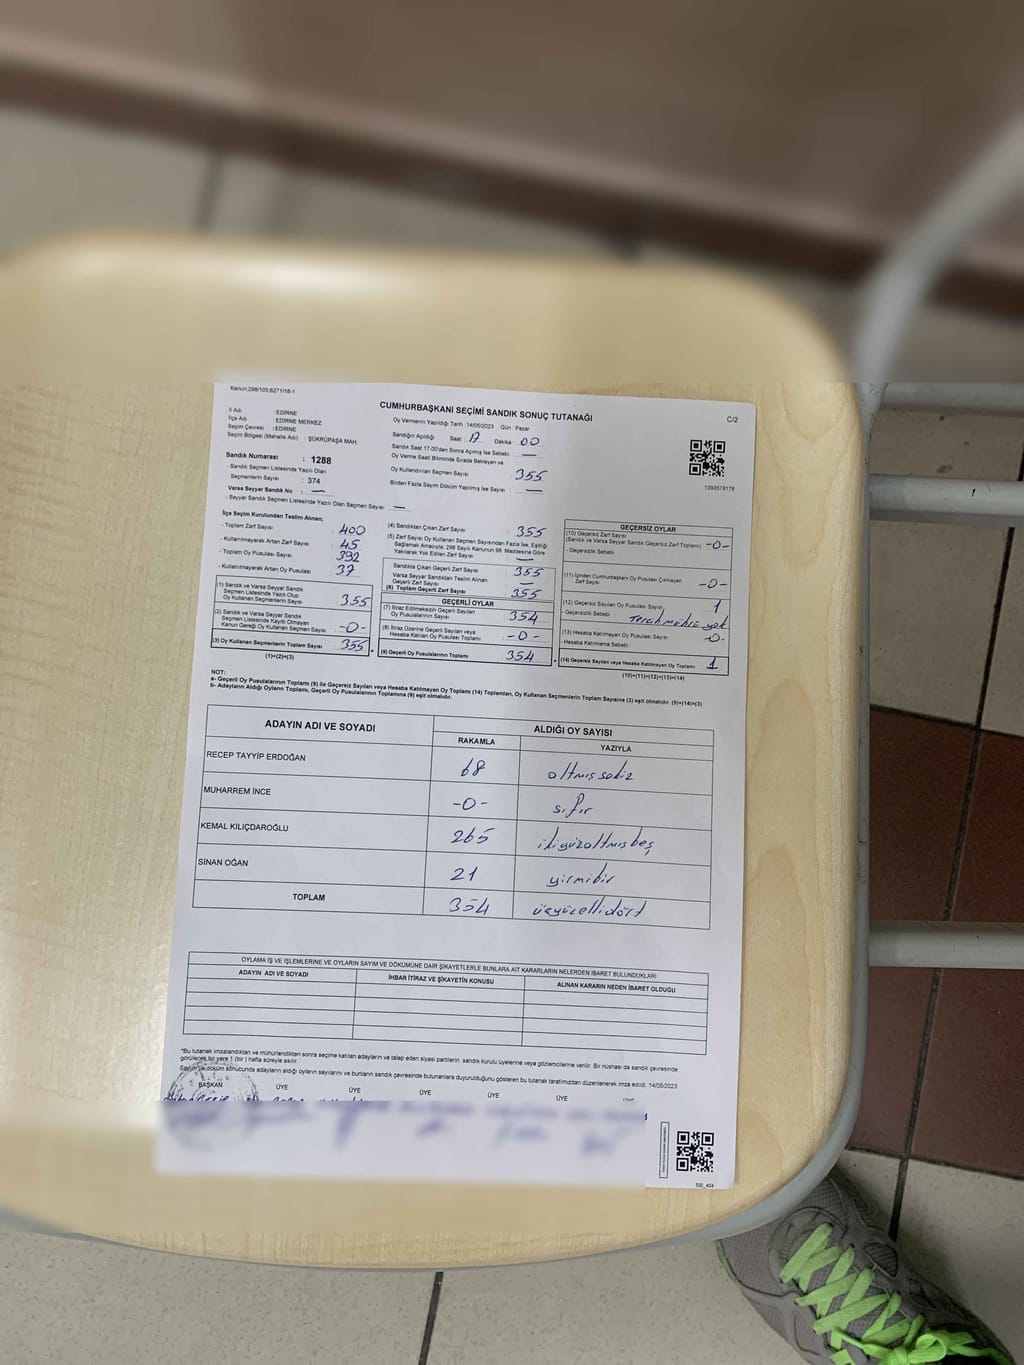 Kanun:298/105;6271/16-1
CUMHURBAŞKANI SEÇİMİ SANDIK SONUÇ TUTANAĞI
C/2
İl Adı : EDİRNE
İlçe Adı : EDİRNE MERKEZ
Seçim Çevresi : EDİRNE
Seçim Bölgesi (Mahalle Adı) : ŞÜKRÜPAŞA MAH.
Sandık Numarası : 1288
- Sandık Seçmen Listesinde Yazılı Olan
Seçmenlerin Sayısı : 374
Varsa Seyyar Sandık No : —
- Seyyar Sandık Seçmen Listesinde Yazılı Olan Seçmen Sayısı: —
Oy Vermenin Yapıldığı Tarih : 14/05/2023 Gün : Pazar
Sandığın Açıldığı Saat : 17 Dakika : 00
Sandık Saat 17.00'den Sonra Açılmış İse Sebebi : —
Oy Verme Saati Bitiminde Sırada Bekleyen ve
Oy Kullandırılan Seçmen Sayısı : 355
Birden Fazla Sayım Döküm Yapılmış İse Sayısı : —
1093578178
İlçe Seçim Kurulundan Teslim Alınan;
- Toplam Zarf Sayısı : 400
- Kullanılmayarak Artan Zarf Sayısı : 45
- Toplam Oy Pusulası Sayısı : 392
- Kullanılmayarak Artan Oy Pusulası : 37
(1) Sandık ve Varsa Seyyar Sandık
Seçmen Listesinde Yazılı Olup
Oy Kullanan Seçmenlerin Sayısı : 355
(2) Sandık ve Varsa Seyyar Sandık
Seçmen Listesinde Kayıtlı Olmayan
Kanun Gereği Oy Kullanan Seçmen Sayısı : -0-
(3) Oy Kullanan Seçmenlerin Toplam Sayısı : 355
(1)+(2)=(3)
(4) Sandıktan Çıkan Zarf Sayısı : 355
(5) Zarf Sayısı Oy Kullanan Seçmen Sayısından Fazla İse, Eşitliği
Sağlamak Amacıyla; 298 Sayılı Kanunun 98. Maddesine Göre
Yakılarak Yok Edilen Zarf Sayısı : —
Sandıkta Çıkan Geçerli Zarf Sayısı : 355
Varsa Seyyar Sandıktan Teslim Alınan
Geçerli Zarf Sayısı : —
(6) Toplam Geçerli Zarf Sayısı : 355
GEÇERLİ OYLAR
(7) İtiraz Edilmeksizin Geçerli Sayılan
Oy Pusulalarının Sayısı : 354
(8) İtiraz Üzerine Geçerli Sayılan veya
Hesaba Katılan Oy Pusulası Toplamı : -0-
(9) Geçerli Oy Pusulalarının Toplamı : 354
GEÇERSİZ OYLAR
(10) Geçersiz Zarf Sayısı
(Sandık ve Varsa Seyyar Sandık Geçersiz Zarf Toplamı) : -0-
- Geçersizlik Sebebi :
(11) İçinden Cumhurbaşkanı Oy Pusulası Çıkmayan
Zarf Sayısı : -0-
(12) Geçersiz Sayılan Oy Pusulası Sayısı : 1
- Geçersizlik Sebebi : Tercih mührü yok
(13) Hesaba Katılmayan Oy Pusulası Sayısı : -0-
- Hesaba Katılmama Sebebi :
(14) Geçersiz Sayılan veya Hesaba Katılmayan Oy Toplamı : 1
(10)+(11)+(12)+(13)=(14)
NOT:
a- Geçerli Oy Pusulalarının Toplamı (9) ile Geçersiz Sayılan veya Hesaba Katılmayan Oy Toplamı (14) Toplamları, Oy Kullanan Seçmenlerin Toplam Sayısına (3) eşit olmalıdır. (9)+(14)=(3)
b- Adayların Aldığı Oyların Toplamı, Geçerli Oy Pusulalarının Toplamına (9) eşit olmalıdır.
ADAYIN ADI VE SOYADI
ALDIĞI OY SAYISI
RAKAMLA YAZIYLA
RECEP TAYYİP ERDOĞAN 68 altmışsekiz
MUHARREM İNCE -0- sıfır
KEMAL KILIÇDAROĞLU 265 ikiyüzaltmışbeş
SİNAN OĞAN 21 yirmibir
TOPLAM 354 üçyüzellidört
OYLAMA İŞ VE İŞLEMLERİNE VE OYLARIN SAYIM VE DÖKÜMÜNE DAİR ŞİKAYETLERLE BUNLARA AİT KARARLARIN NELERDEN İBARET BULUNDUKLARI
ADAYIN ADI VE SOYADI İHBAR İTİRAZ VE ŞİKAYETİN KONUSU ALINAN KARARIN NEDEN İBARET OLDUĞU
*Bu tutanak imzalandıktan ve mühürlendikten sonra seçime katılan adayların ve talep eden siyasi partilerin sandık kurulu üyelerine veya gözlemcilerine verilir. Bir nüshası da sandık çevresinde
görülecek bir yere 1 (bir) hafta süreyle asılır.
Sayım ve döküm sonucunda adayların aldığı oyların sayılarını ve bunların sandık çevresinde bulunanlara duyurulduğunu gösteren bu tutanak tarafımızdan düzenlenerek imza edildi. 14/05/2023
BAŞKAN ÜYE ÜYE ÜYE ÜYE ÜYE ÜYE
SSİ_404